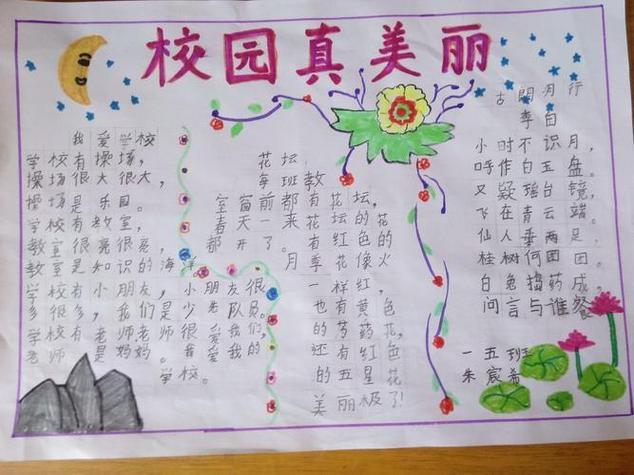 校园真美丽
我爱学校
学校有操场，
操场很大很大，
操场是乐园。
学校有教室，
教室很亮很亮，
教室是知识的海洋
学校有小朋友，小朋友很
多很多，我们是少先队员。
学校有老师老师很爱我们，
老师是妈妈。我爱我的
学校。
花坛
每班教
室窗前都有花坛，
春天一来花坛的花
都开了。有红色的
月季花像火
一样红，
也有黄色
的芍药花，
还有红色
的五星花
美丽极了！
古朗月行
李白
小时不识月，
呼作白玉盘。
又疑瑶台镜，
飞在青云端。
仙人垂两足
桂树何团团
白兔捣药成
问言与谁餐
一五班
朱宸希